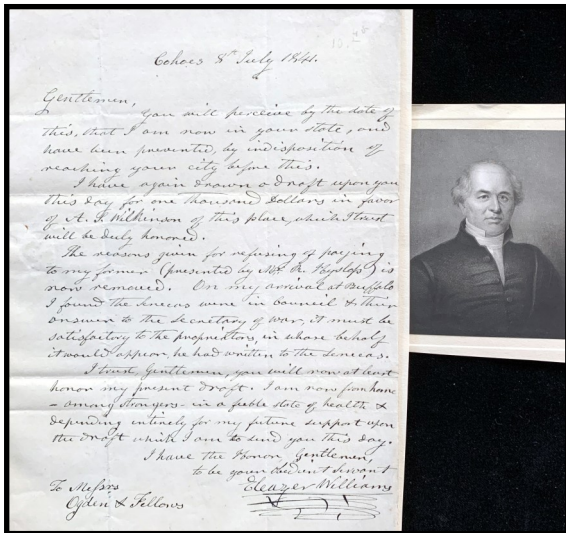 Cohoes 8th July 1841.
Gentlemen,
You will perceive by the date of
this, that I am now in your state, and
have been prevented, by indisposition of
reaching your city before this.
I have again drawn a draft upon you
this day for one thousand Dollars in favor
of A. J. Wilkinson of this place, which I trust
will be duly honored.
The reasons given for refusing of paying
to my former (presented by Mr. R. Hyslop) is
now removed. On my arrival at Buffalo
I found the Senecas were in Council & their
answer to the Secretary of war, it must be
satisfactory to the proprietors, in whose behalf
it would appear, he had written to the Senecas.
I trust, Gentlemen, you will now at least
honor my present draft. I am now from home
- among strangers - in a feeble state of health &
depending entirely for my future support upon
the draft which I am to send you this day.
I have the Honor, Gentlemen,
to be your obedient servant
Eleazer Williams
To Messrs
Ogden & Fellows